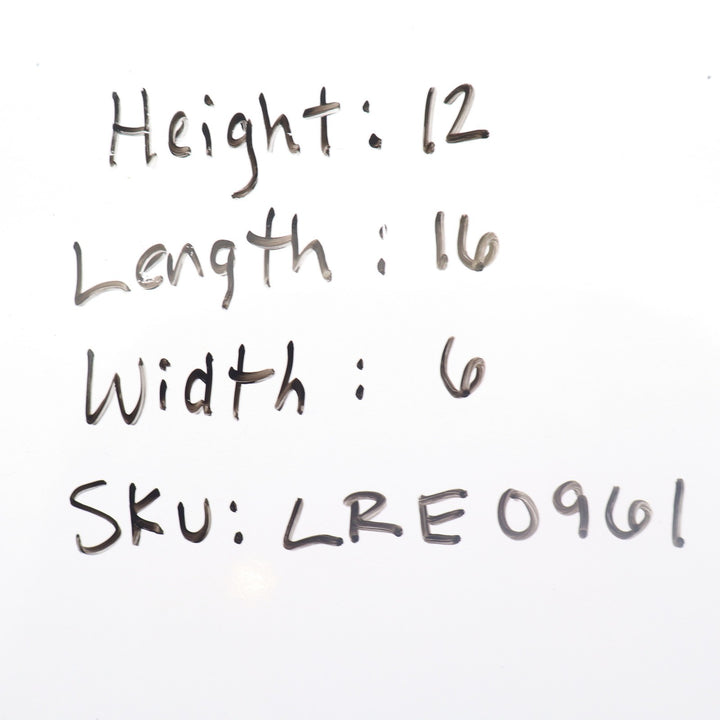 Height: 12
Length: 16
Width: 6
SKU: LRE0961